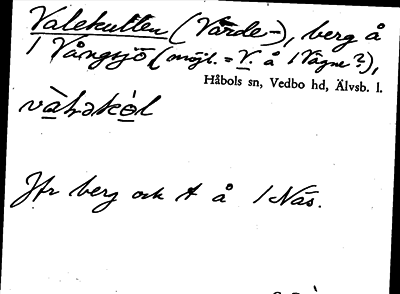 Valekullen (Vårde-), berg å
/ Vångsjö (möjl. = V. å / Vågne?),
Håbols sn, Vedbo hd, Älvsb. l.
Jfr berg och t å / Näs.